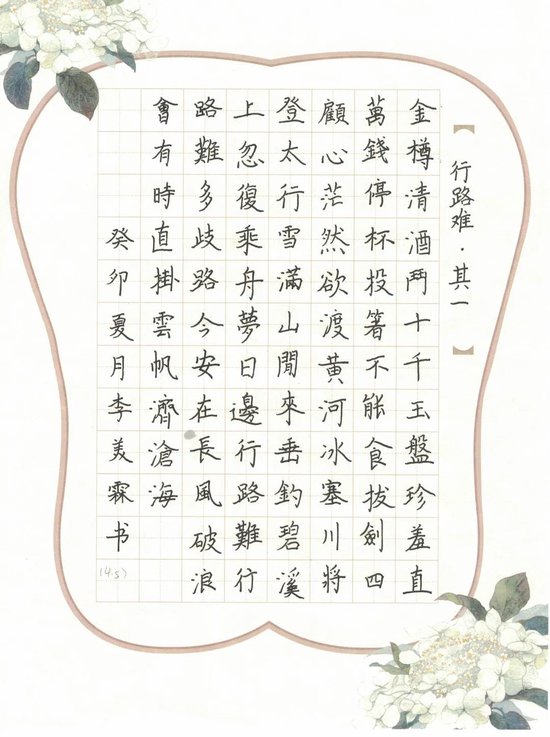 【行路难·其一】
金樽清酒鬥十千玉盤珍羞直
萬錢停杯投箸不能食拔劍四
顧心茫然欲渡黃河冰塞川將
登太行雪滿山閒來垂釣碧溪
上忽復乘舟夢日邊行路難行
路難多歧路今安在長風破浪
會有時直掛雲帆濟滄海
癸卯夏月李美霖书
(4.5)